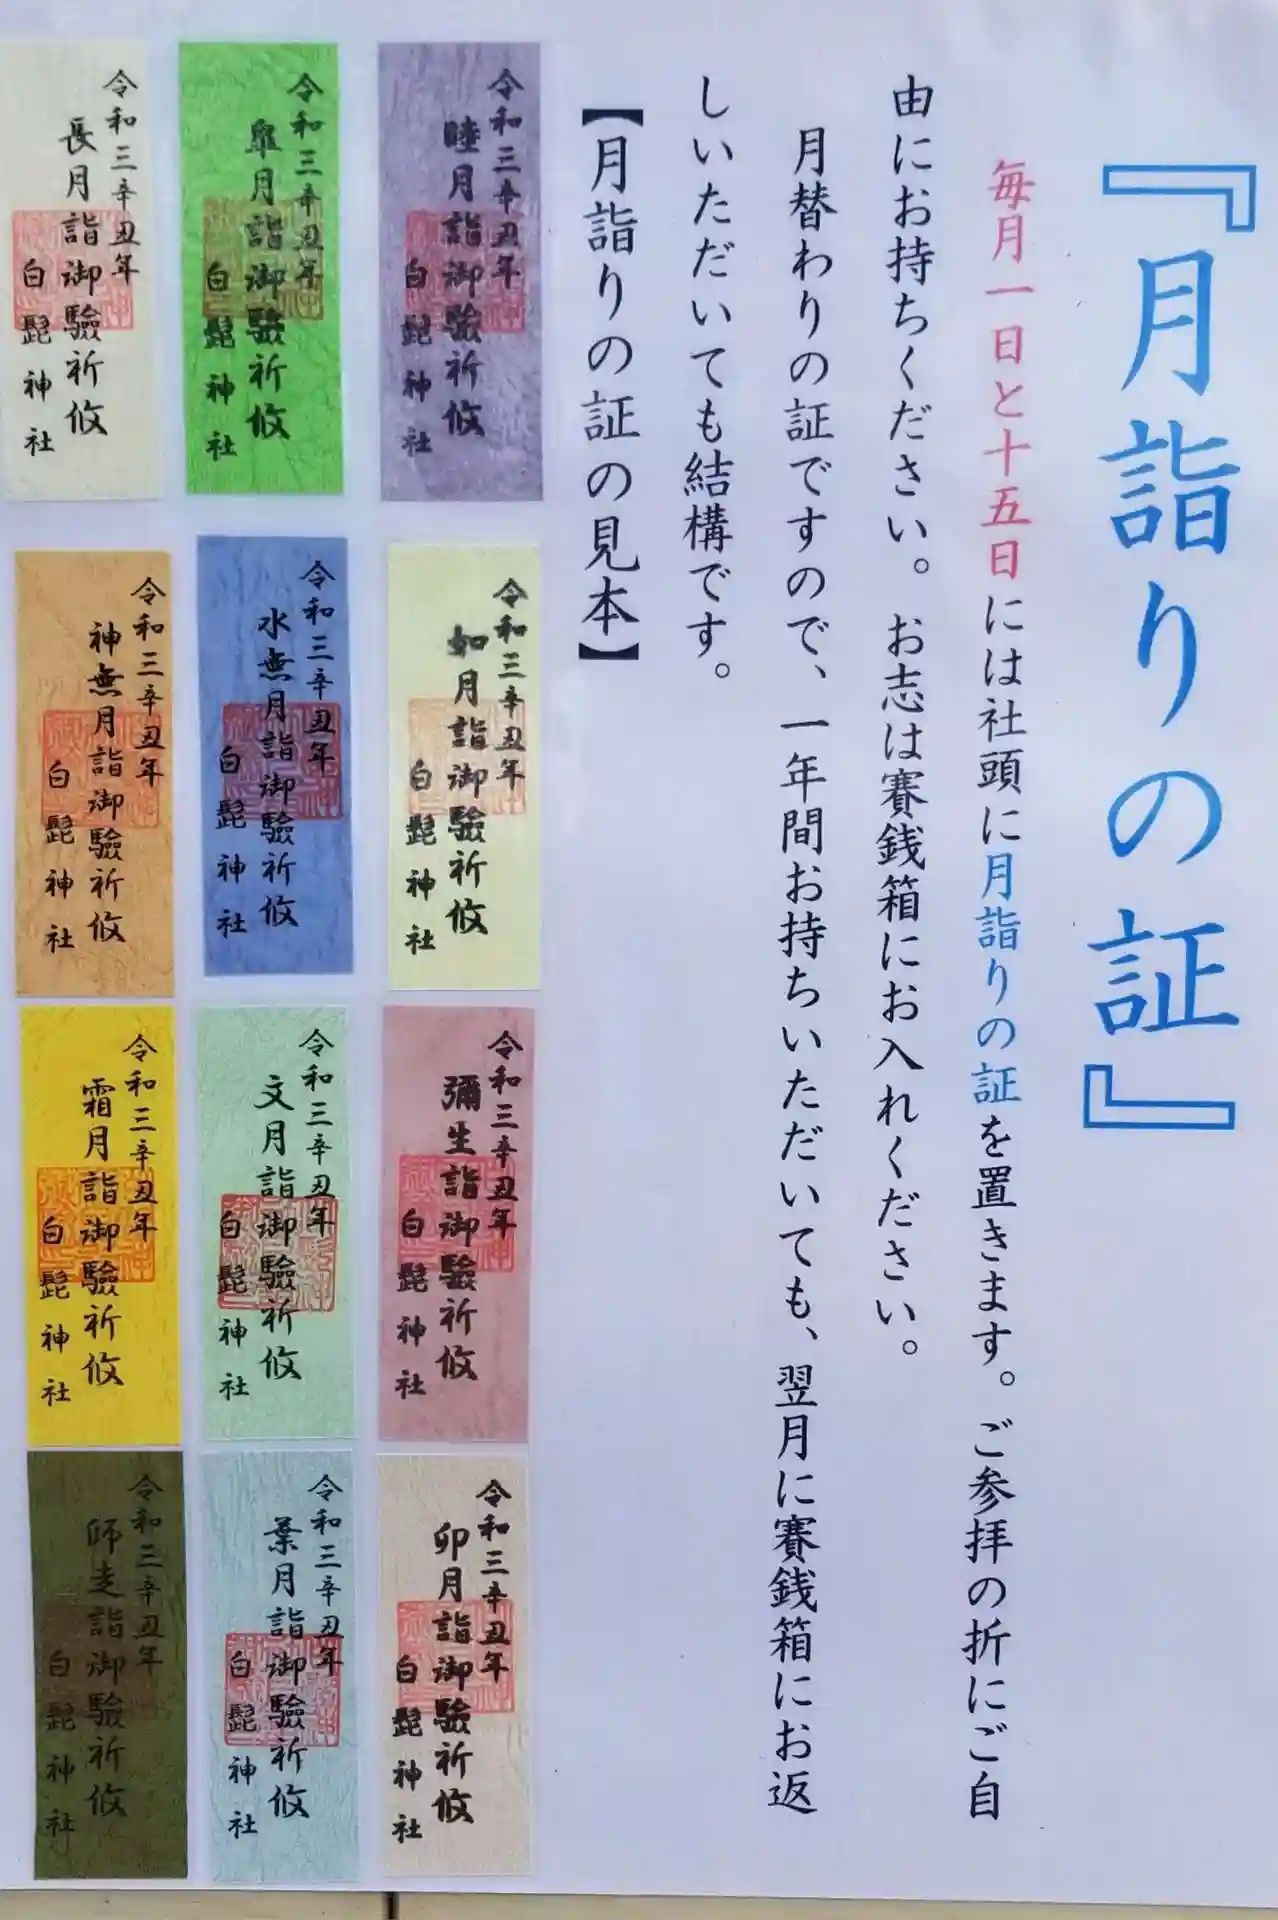 『月詣りの証』
毎月一日と十五日には社頭に月詣りの証を置きます。ご参拝の折にご自
由にお持ちください。お志は賽銭箱にお入れください。
月替わりの証ですので、一年間お持ちいただいても、翌月に賽銭箱にお返
しいただいても結構です。
【月詣りの証の見本】
令和三辛丑年
睦月詣御驗祈攸
白髭神社
令和三辛丑年
如月詣御驗祈攸
白髭神社
令和三辛丑年
彌生詣御驗祈攸
白髭神社
令和三辛丑年
卯月詣御驗祈攸
白髭神社
令和三辛丑年
皐月詣御驗祈攸
白髭神社
令和三辛丑年
水無月詣御驗祈攸
白髭神社
令和三辛丑年
文月詣御驗祈攸
白髭神社
令和三辛丑年
葉月詣御驗祈攸
白髭神社
令和三辛丑年
長月詣御驗祈攸
白髭神社
令和三辛丑年
神無月詣御驗祈攸
白髭神社
令和三辛丑年
霜月詣御驗祈攸
白髭神社
令和三辛丑年
師走詣御驗祈攸
白髭神社